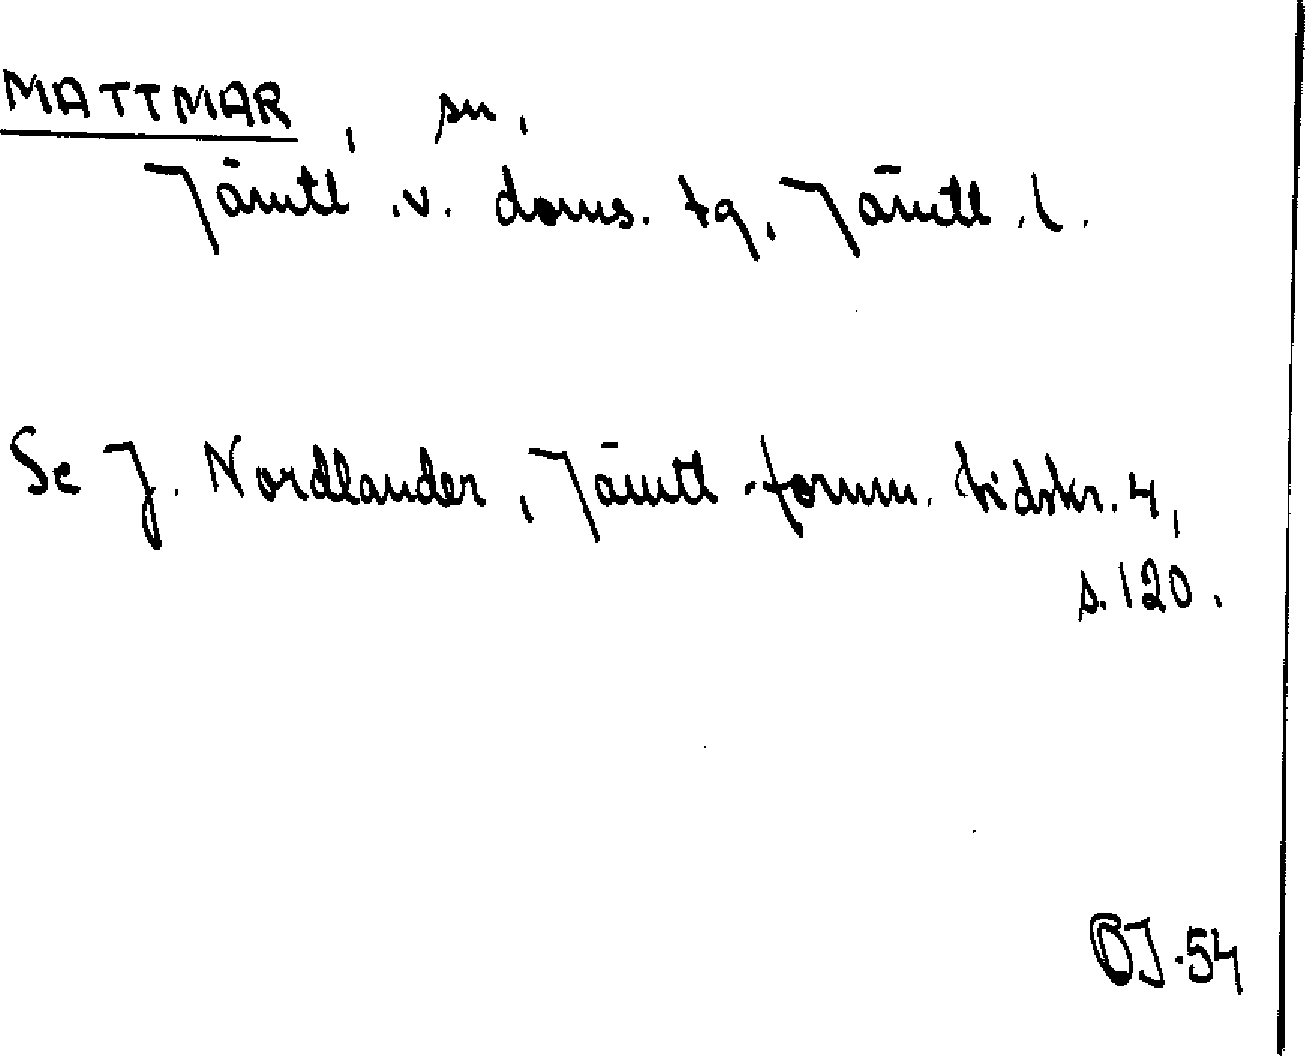 MATTMAR, sn,
Jämtl.v. doms. tg, Jämtl.l.
Se J. Nordlander, Jämtl.fornm. tidskr. 4,
s.120.
OJ.54